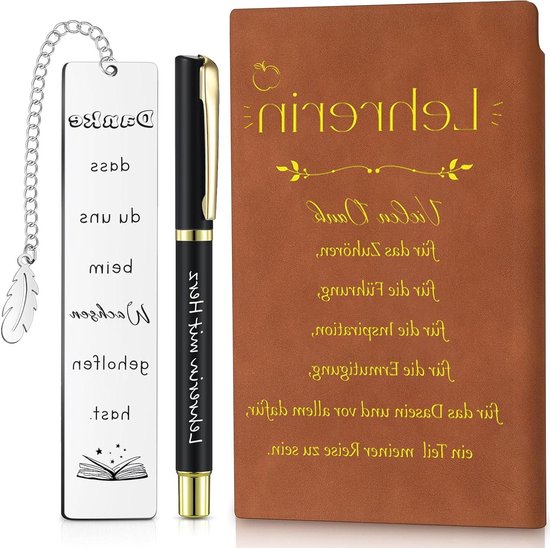 Danke
dass
du uns
beim
Wachsen
geholfen
hast.
Lehrerin mit Herz
Lehrerin
Vielen Dank
für das Zuhören,
für die Führung,
für die Inspiration,
für die Ermutigung,
für das Dasein und vor allem dafür,
ein Teil meiner Reise zu sein.